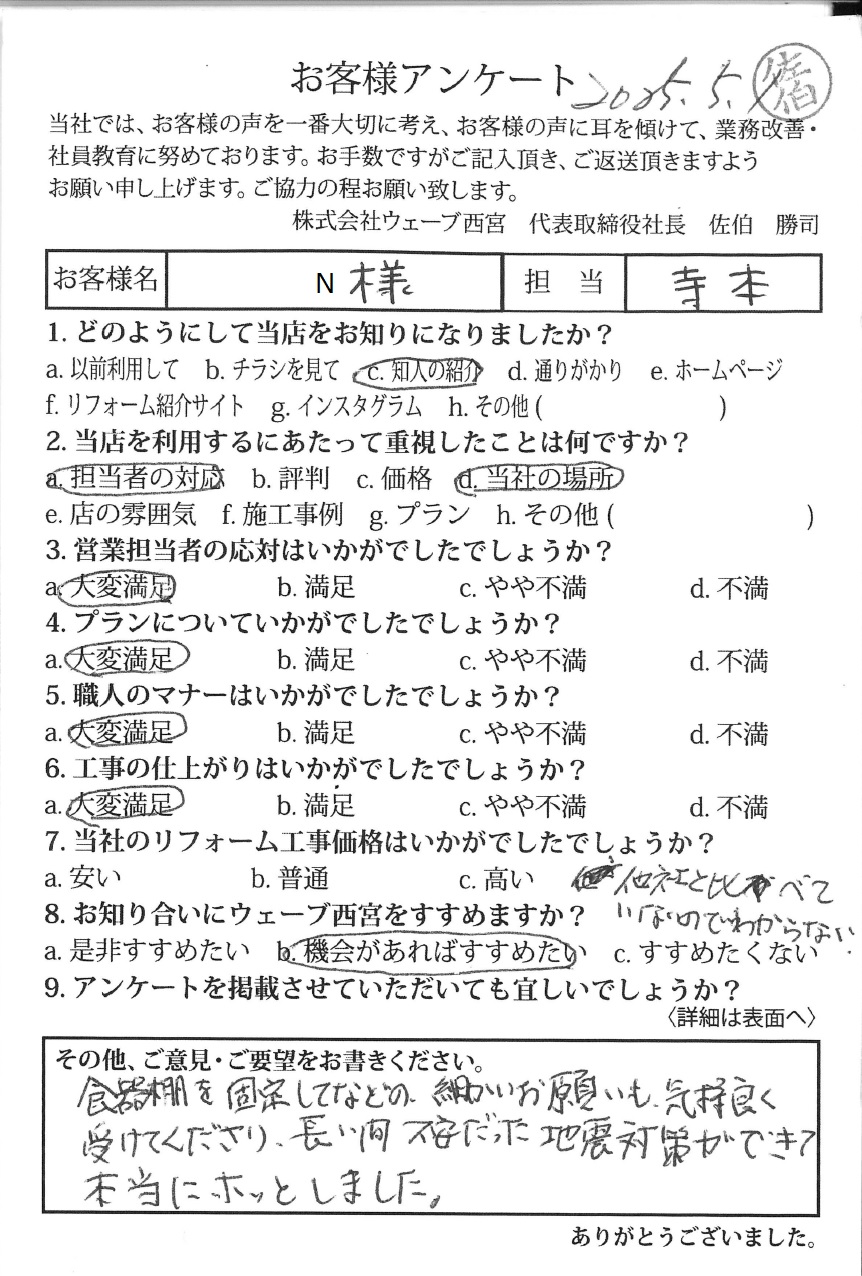 お客様アンケート 2025.5.
佐伯
当社では、お客様の声を一番大切に考え、お客様の声に耳を傾けて、業務改善・
社員教育に努めております。お手数ですがご記入頂き、ご返送頂きますよう
お願い申し上げます。ご協力の程お願い致します。
株式会社ウェーブ西宮 代表取締役社長 佐伯 勝司
お客様名 N 様 担当 寺本
1. どのようにして当店をお知りになりましたか?
a. 以前利用して b. チラシを見て c. 知人の紹介 d. 通りがかり e. ホームページ
f. リフォーム紹介サイト g. インスタグラム h. その他 ( )
2. 当店を利用するにあたって重視したことは何ですか?
a. 担当者の対応 b. 評判 c. 価格 d. 当社の場所
e. 店の雰囲気 f. 施工事例 g. プラン h. その他 ( )
3. 営業担当者の応対はいかがでしたでしょうか?
a. 大変満足 b. 満足 c. やや不満 d. 不満
4. プランについていかがでしたでしょうか?
a. 大変満足 b. 満足 c. やや不満 d. 不満
5. 職人のマナーはいかがでしたでしょうか?
a. 大変満足 b. 満足 c. やや不満 d. 不満
6. 工事の仕上がりはいかがでしたでしょうか?
a. 大変満足 b. 満足 c. やや不満 d. 不満
7. 当社のリフォーム工事価格はいかがでしたでしょうか?
a. 安い b. 普通 c. 高い 他社と比べて
いないのでわからない.
8. お知り合いにウェーブ西宮をすすめますか?
a. 是非すすめたい b. 機会があればすすめたい c. すすめたくない
9. アンケートを掲載させていただいても宜しいでしょうか?
〈詳細は表面へ〉
その他、ご意見・ご要望をお書きください。
食器棚を固定してなどの、細かいお願いも、気持良く
受けてくださり、長い間不安だった地震対策ができて
本当にホッとしました。
ありがとうございました。